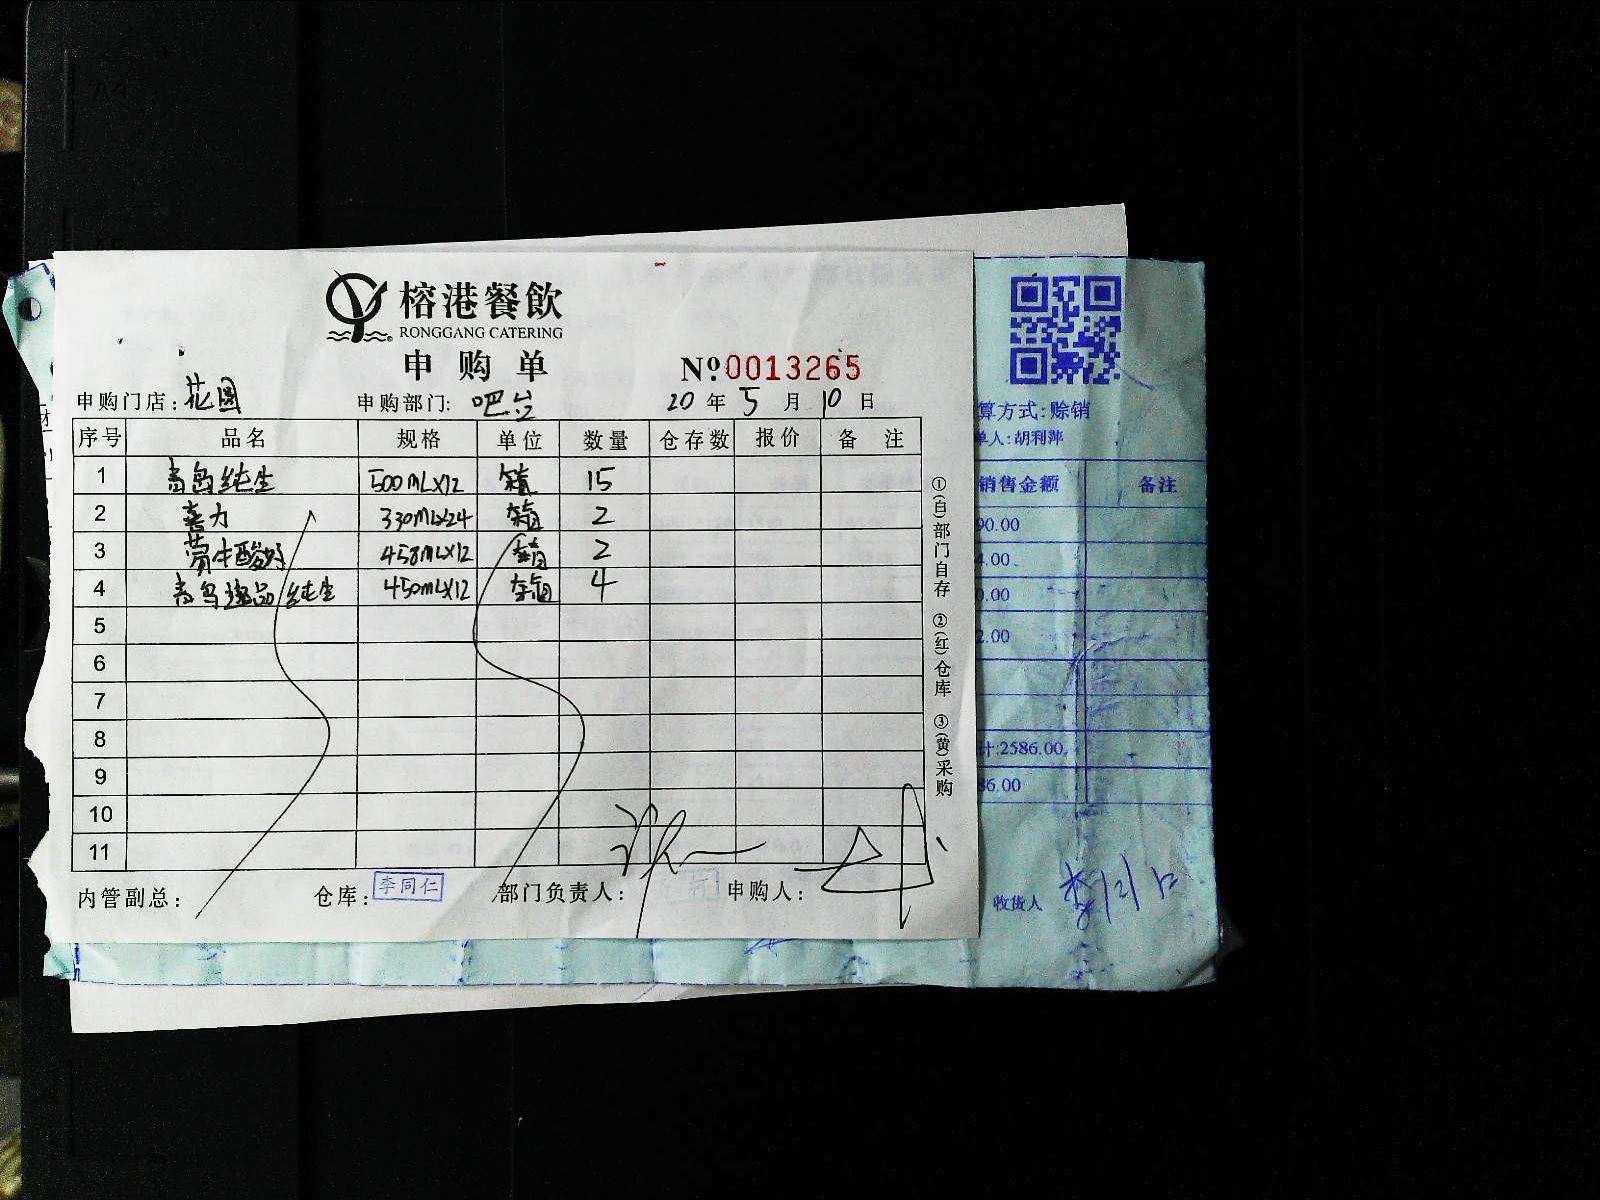 榕港餐飲
RONGGANG CATERING
申购单
№0013265
申购门店：花园 申购部门：吧台 20年5月10日
序号 品名 规格 单位 数量 仓存数 报价 备注
1 青岛纯生 500MLX12 箱 15
2 喜力 330MLX24 箱 2
3 蒙牛酸奶 458MLX12 箱 2
4 青岛逸品纯生 450MLX12 箱 4
5
6
7
8
9
10
11
内管副总： 仓库：李同仁 部门负责人： 申购人：
①(白)部门自存 ②(红)仓库 ③(黄)采购
算方式:赊销
单人:胡利萍
销售金额 备注
90.00
4.00
0.00
2.00
计:2586.00
86.00
收货人